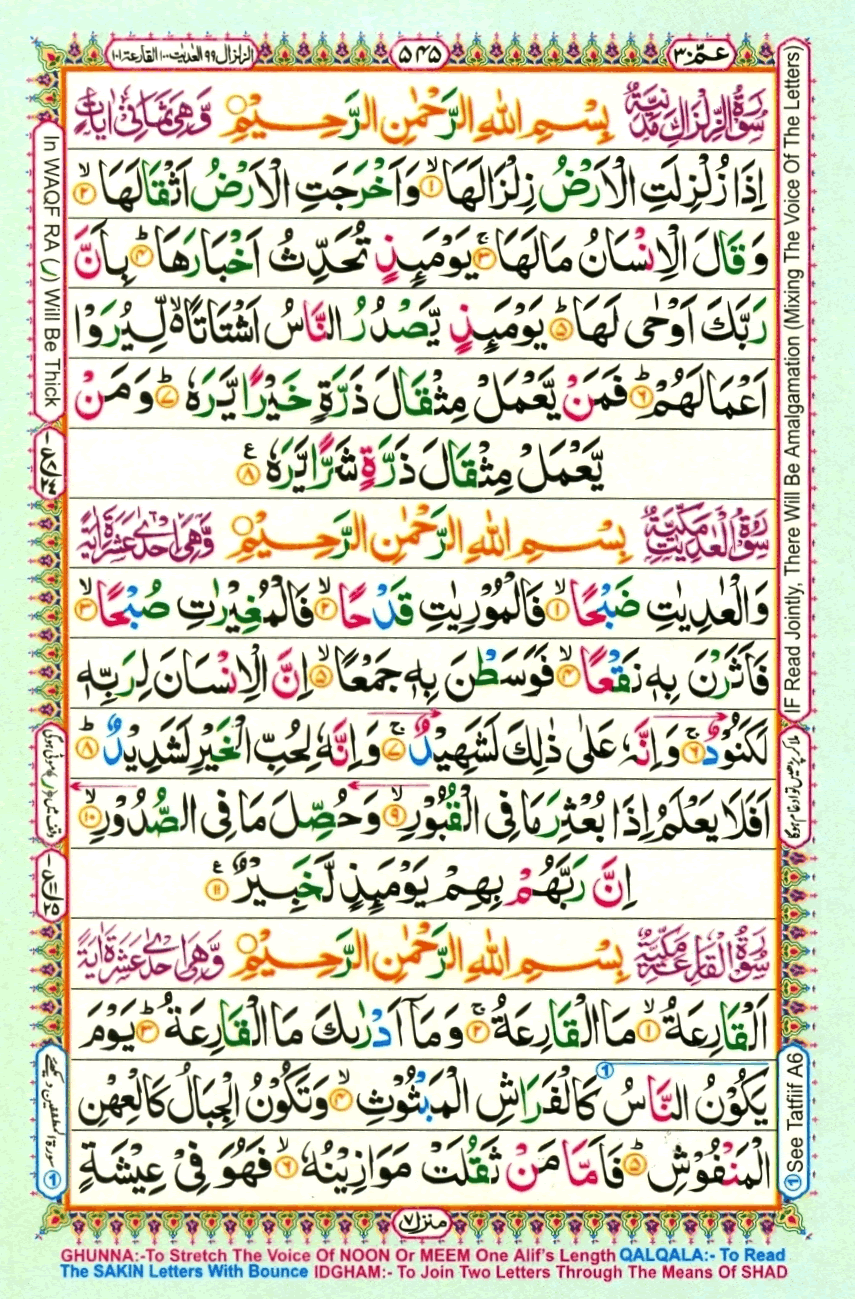 عمّ ٣٠
۵۴۵
الزلزال ٩٩ العٰديٰت ١٠٠ القارعة ١٠١
سُوْرَةُ الزِّلْزَالِ مَدَنِيَّةٌ بِسْمِ اللّٰهِ الرَّحْمٰنِ الرَّحِيْمِ وَّهِيَ ثَمَانِيْ اٰيَاتٍ
اِذَا زُلْزِلَتِ الْاَرْضُ زِلْزَالَهَا ۙ‏﴿۱﴾ وَاَخْرَجَتِ الْاَرْضُ اَثْقَالَهَا ۙ‏﴿۲﴾
وَقَالَ الْاِنْسَانُ مَا لَهَا ۚ‏﴿۳﴾ يَوْمَئِذٍ تُحَدِّثُ اَخْبَارَهَا ؕ‏﴿۴﴾ بِاَنَّ
رَبَّكَ اَوْحٰى لَهَا ؕ‏﴿۵﴾ يَوْمَئِذٍ يَّصْدُرُ النَّاسُ اَشْتَاتًا ۙ۬ لِّيُرَوْا
اَعْمَالَهُمْ ؕ‏﴿۶﴾ فَمَنْ يَّعْمَلْ مِثْقَالَ ذَرَّةٍ خَيْرًا يَّرَهٗ ؕ‏﴿۷﴾ وَمَنْ
يَّعْمَلْ مِثْقَالَ ذَرَّةٍ شَرًّا يَّرَهٗ ‏﴿۸﴾ ع
سُوْرَةُ الْعٰدِيٰتِ مَكِّيَّةٌ بِسْمِ اللّٰهِ الرَّحْمٰنِ الرَّحِيْمِ وَّهِيَ اِحْدٰى عَشَرَةَ اٰيَةً
وَالْعٰدِيٰتِ ضَبْحًا ۙ‏﴿۱﴾ فَالْمُوْرِيٰتِ قَدْحًا ۙ‏﴿۲﴾ فَالْمُغِيْرٰتِ صُبْحًا ۙ‏﴿۳﴾
فَاَثَرْنَ بِهٖ نَقْعًا ۙ‏﴿۴﴾ فَوَسَطْنَ بِهٖ جَمْعًا ۙ‏﴿۵﴾ اِنَّ الْاِنْسَانَ لِرَبِّهٖ
لَكَنُوْدٌ ۚ‏﴿۶﴾ وَاِنَّهٗ عَلٰى ذٰلِكَ لَشَهِيْدٌ ۚ‏﴿۷﴾ وَاِنَّهٗ لِحُبِّ الْخَيْرِ لَشَدِيْدٌ ؕ‏﴿۸﴾
اَفَلَا يَعْلَمُ اِذَا بُعْثِرَ مَا فِى الْقُبُوْرِ ۙ‏﴿۹﴾ وَحُصِّلَ مَا فِى الصُّدُوْرِ ۙ‏﴿۱۰﴾
اِنَّ رَبَّهُمْ بِهِمْ يَوْمَئِذٍ لَّخَبِيْرٌ ‏﴿۱۱﴾ ع
سُوْرَةُ الْقَارِعَةِ مَكِّيَّةٌ بِسْمِ اللّٰهِ الرَّحْمٰنِ الرَّحِيْمِ وَّهِيَ اِحْدٰى عَشَرَةَ اٰيَةً
اَلْقَارِعَةُ ۙ‏﴿۱﴾ مَا الْقَارِعَةُ ۚ‏﴿۲﴾ وَمَاۤ اَدْرٰىكَ مَا الْقَارِعَةُ ؕ‏﴿۳﴾ يَوْمَ
يَكُوْنُ النَّاسُ كَالْفَرَاشِ الْمَبْثُوْثِ ۙ‏﴿۴﴾ وَتَكُوْنُ الْجِبَالُ كَالْعِهْنِ
الْمَنْفُوْشِ ؕ‏﴿۵﴾ فَاَمَّا مَنْ ثَقُلَتْ مَوَازِيْنُهٗ ۙ‏﴿۶﴾ فَهُوَ فِىْ عِيْشَةٍ
منزل ۷
IF Read Jointly, There Will Be Amalgamation (Mixing The Voice Of The Letters)
① See Tatfiif A6
In WAQF RA (ر) Will Be Thick
GHUNNA:-To Stretch The Voice Of NOON Or MEEM One Alif's Length QALQALA:- To Read
The SAKIN Letters With Bounce IDGHAM:- To Join Two Letters Through The Means Of SHAD